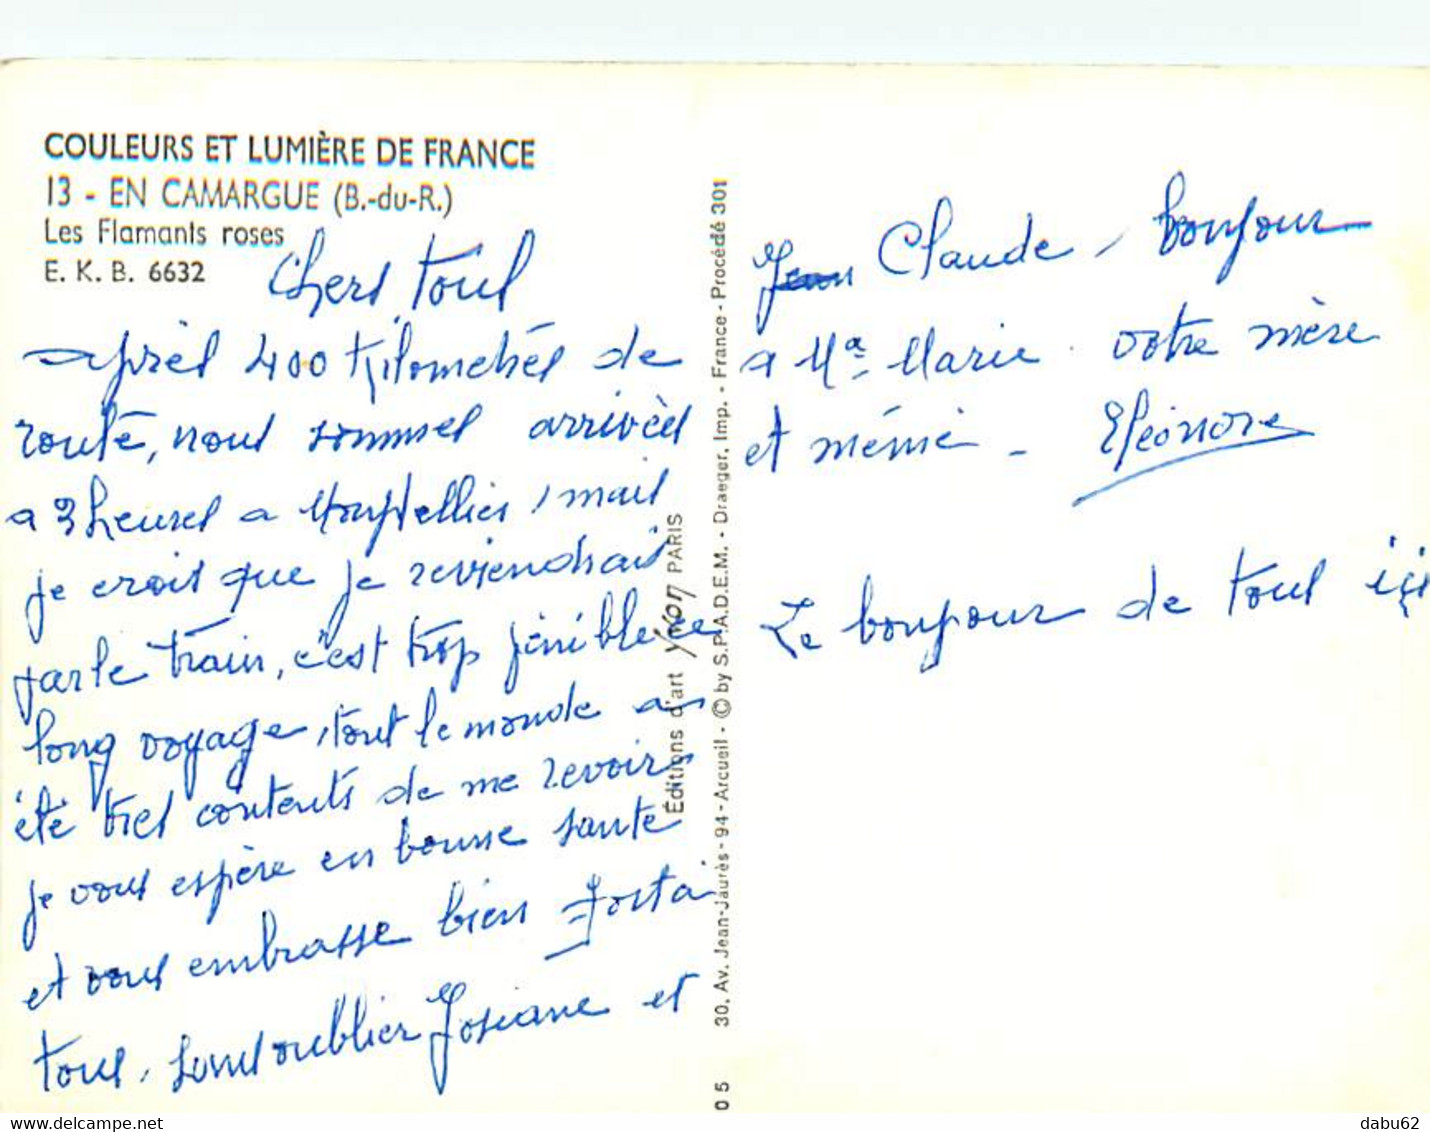 COULEURS ET LUMIÈRE DE FRANCE
13 - EN CAMARGUE (B.-du-R.)
Les Flamants roses
E. K. B. 6632
Chers tous
après 400 Kilometrés de
route, nous sommes arrivées
a 3 heures a Montpellier, mais
je crois que je reviendrais
par le train, c'est trop pénible ce
long voyage, tout le monde a
été tres contents de me revoir
je vous espère en bonne sante
et vous embrasse bien
tous, sans oublier Josiane et
Éditions d'art YVON PARIS
30, Av. Jean-Jaurès - 94 - Arcueil - © by S.P.A.D.E.M. - Draeger, Imp. - France - Procédé 301
0 5
Jean Claude, bonjour
a Ma Marie votre mère
et mémé - Eléonore
Le bonjour de tous ici
delcampe.net
dabu62